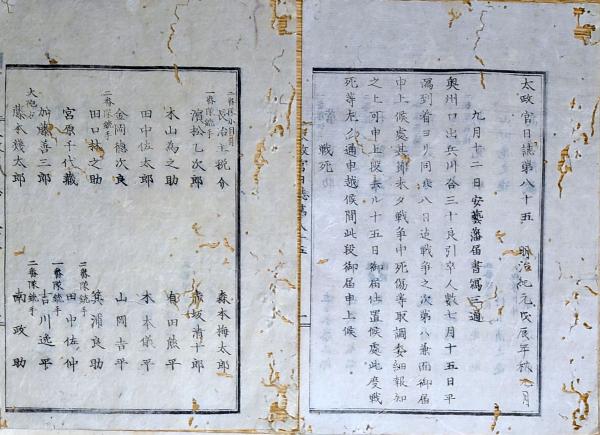 太政官日誌第八十五 明治紀元戊辰年秋九月
九月十二日安藝藩届書寫三通
奥州口出兵川合三十良引卒人數七月十五日平
潟到着ヨリ同廿八日迄戰争之次第八兼而御届
申上候處其節未タ戰争中死傷等取調委細報知
之上可申上段去ル十五日御届仕置候處此度戰
死等左ノ通申越候間此段御届申上候
戰死
二番隊小目付
長冶主税介
森本梅太郎
一番隊銃手
濱松乙次郎
坂清十郎
木山為之助
田熊平
田中佐太郎
木本儀平
金岡德次良
山岡吉平
二番隊銃手
田口林之助
箕浦良助
二番隊銃手
宮原千代藏
田中佐仲
加藤喜三郎
一番隊銃手
吉川逸平
大砲
藤本幾太郎
二番隊銃手
南政助